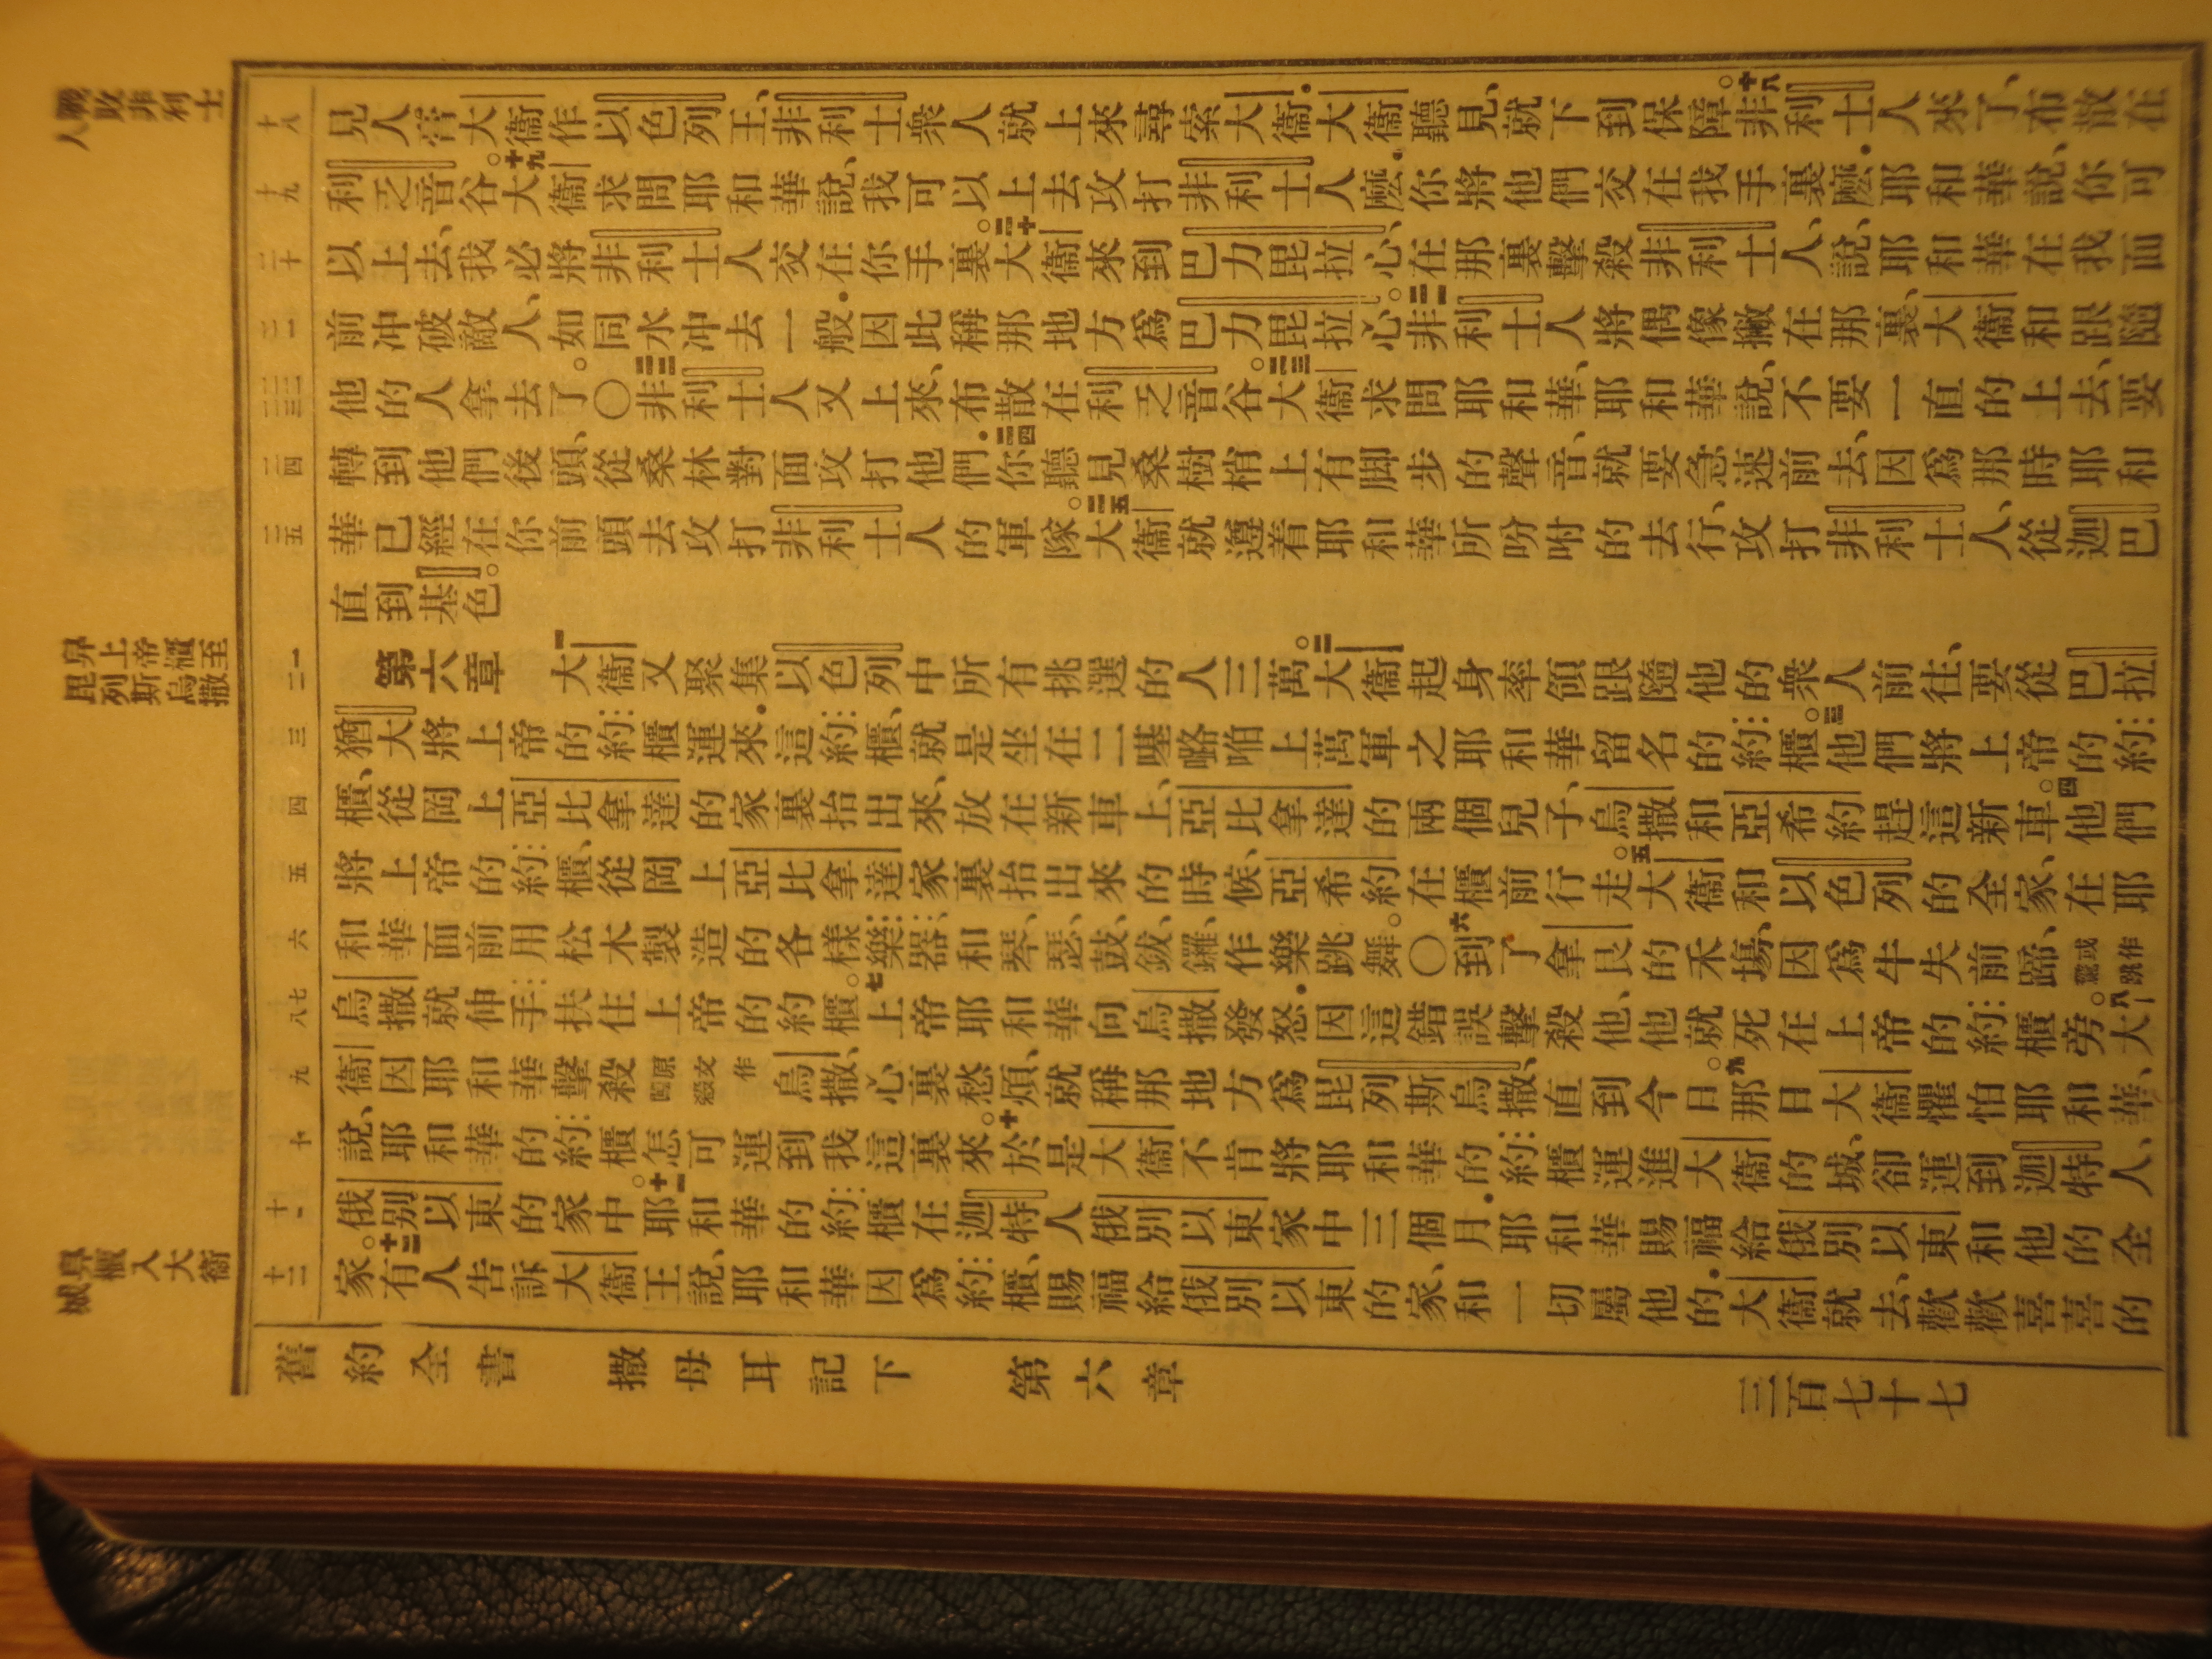 戰敗非利士人
舁上帝櫃至毘列斯烏撒
舁櫃入大衞城
十八
見人膏大衞作以色列王、非利士衆人就上來尋索大衞．大衞聽見、就下到保障。十八非利士人來了、布散在
十九
利乏音谷。十九大衞求問耶和華說、我可以上去攻打非利士人麽．你將他們交在我手裏麽．耶和華說、你可
二十
以上去、我必將非利士人交在你手裏。二十大衞來到巴力毘拉心、在那裏擊殺非利士人、說、耶和華在我面
二一
前冲破敵人、如同水冲去一般．因此稱那地方爲巴力毘拉心。二一非利士人將偶像撇在那裏、大衞和跟隨
二二 二三
他的人拿去了。〇二二非利士人又上來、布散在利乏音谷。二三大衞求問耶和華、耶和華說、不要一直的上去、要
二四
轉到他們後頭、從桑林對面攻打他們．二四你聽見桑樹梢上有脚步的聲音、就要急速前去、因爲那時耶和
二五
華已經在你前頭去攻打非利士人的軍隊。二五大衞就遵着耶和華所吩咐的去行、攻打非利士人、從迦巴
直到基色。
一 二
第六章 一大衞又聚集以色列中所有挑選的人三萬。二大衞起身率領跟隨他的衆人前往、要從巴拉
三
猶大將上帝的約櫃運來．這約櫃、就是坐在二𠼻㗉啪上萬軍之耶和華留名的約櫃。三他們將上帝的約
四
櫃、從岡上亞比拿達的家裏抬出來、放在新車上、亞比拿達的兩個兒子、烏撒和亞希約趕這新車。四他們
五
將上帝的約櫃、從岡上亞比拿達家裏抬出來的時候、亞希約在櫃前行走。五大衞和以色列的全家、在耶
六
和華面前用松木製造的各樣樂器、和琴、瑟、鼓、鈸、鑼、作樂跳舞。〇六到了拿艮的禾場、因爲牛失前蹄、或作驚跳
七 八
烏撒就伸手扶住上帝的約櫃。七上帝耶和華向烏撒發怒．因這錯誤擊殺他、他就死在上帝的約櫃旁。八大
九
衞因耶和華擊殺原文作闖殺烏撒、心裏愁煩、就稱那地方爲毘列斯烏撒、直到今日。九那日大衞懼怕耶和華、
十
說、耶和華的約櫃怎可運到我這裏來。十於是大衞不肯將耶和華的約櫃運進大衞的城、卻運到迦特人、
十一
俄別以東的家中。十一耶和華的約櫃在迦特人俄別以東家中三個月．耶和華賜福給俄別以東和他的全
十二
家。十二有人告訴大衞王說、耶和華因爲約櫃、賜福給俄別以東的家、和一切屬他的．大衞就去、歡歡喜喜的
舊約全書 撒母耳記下 第六章 三百七十七